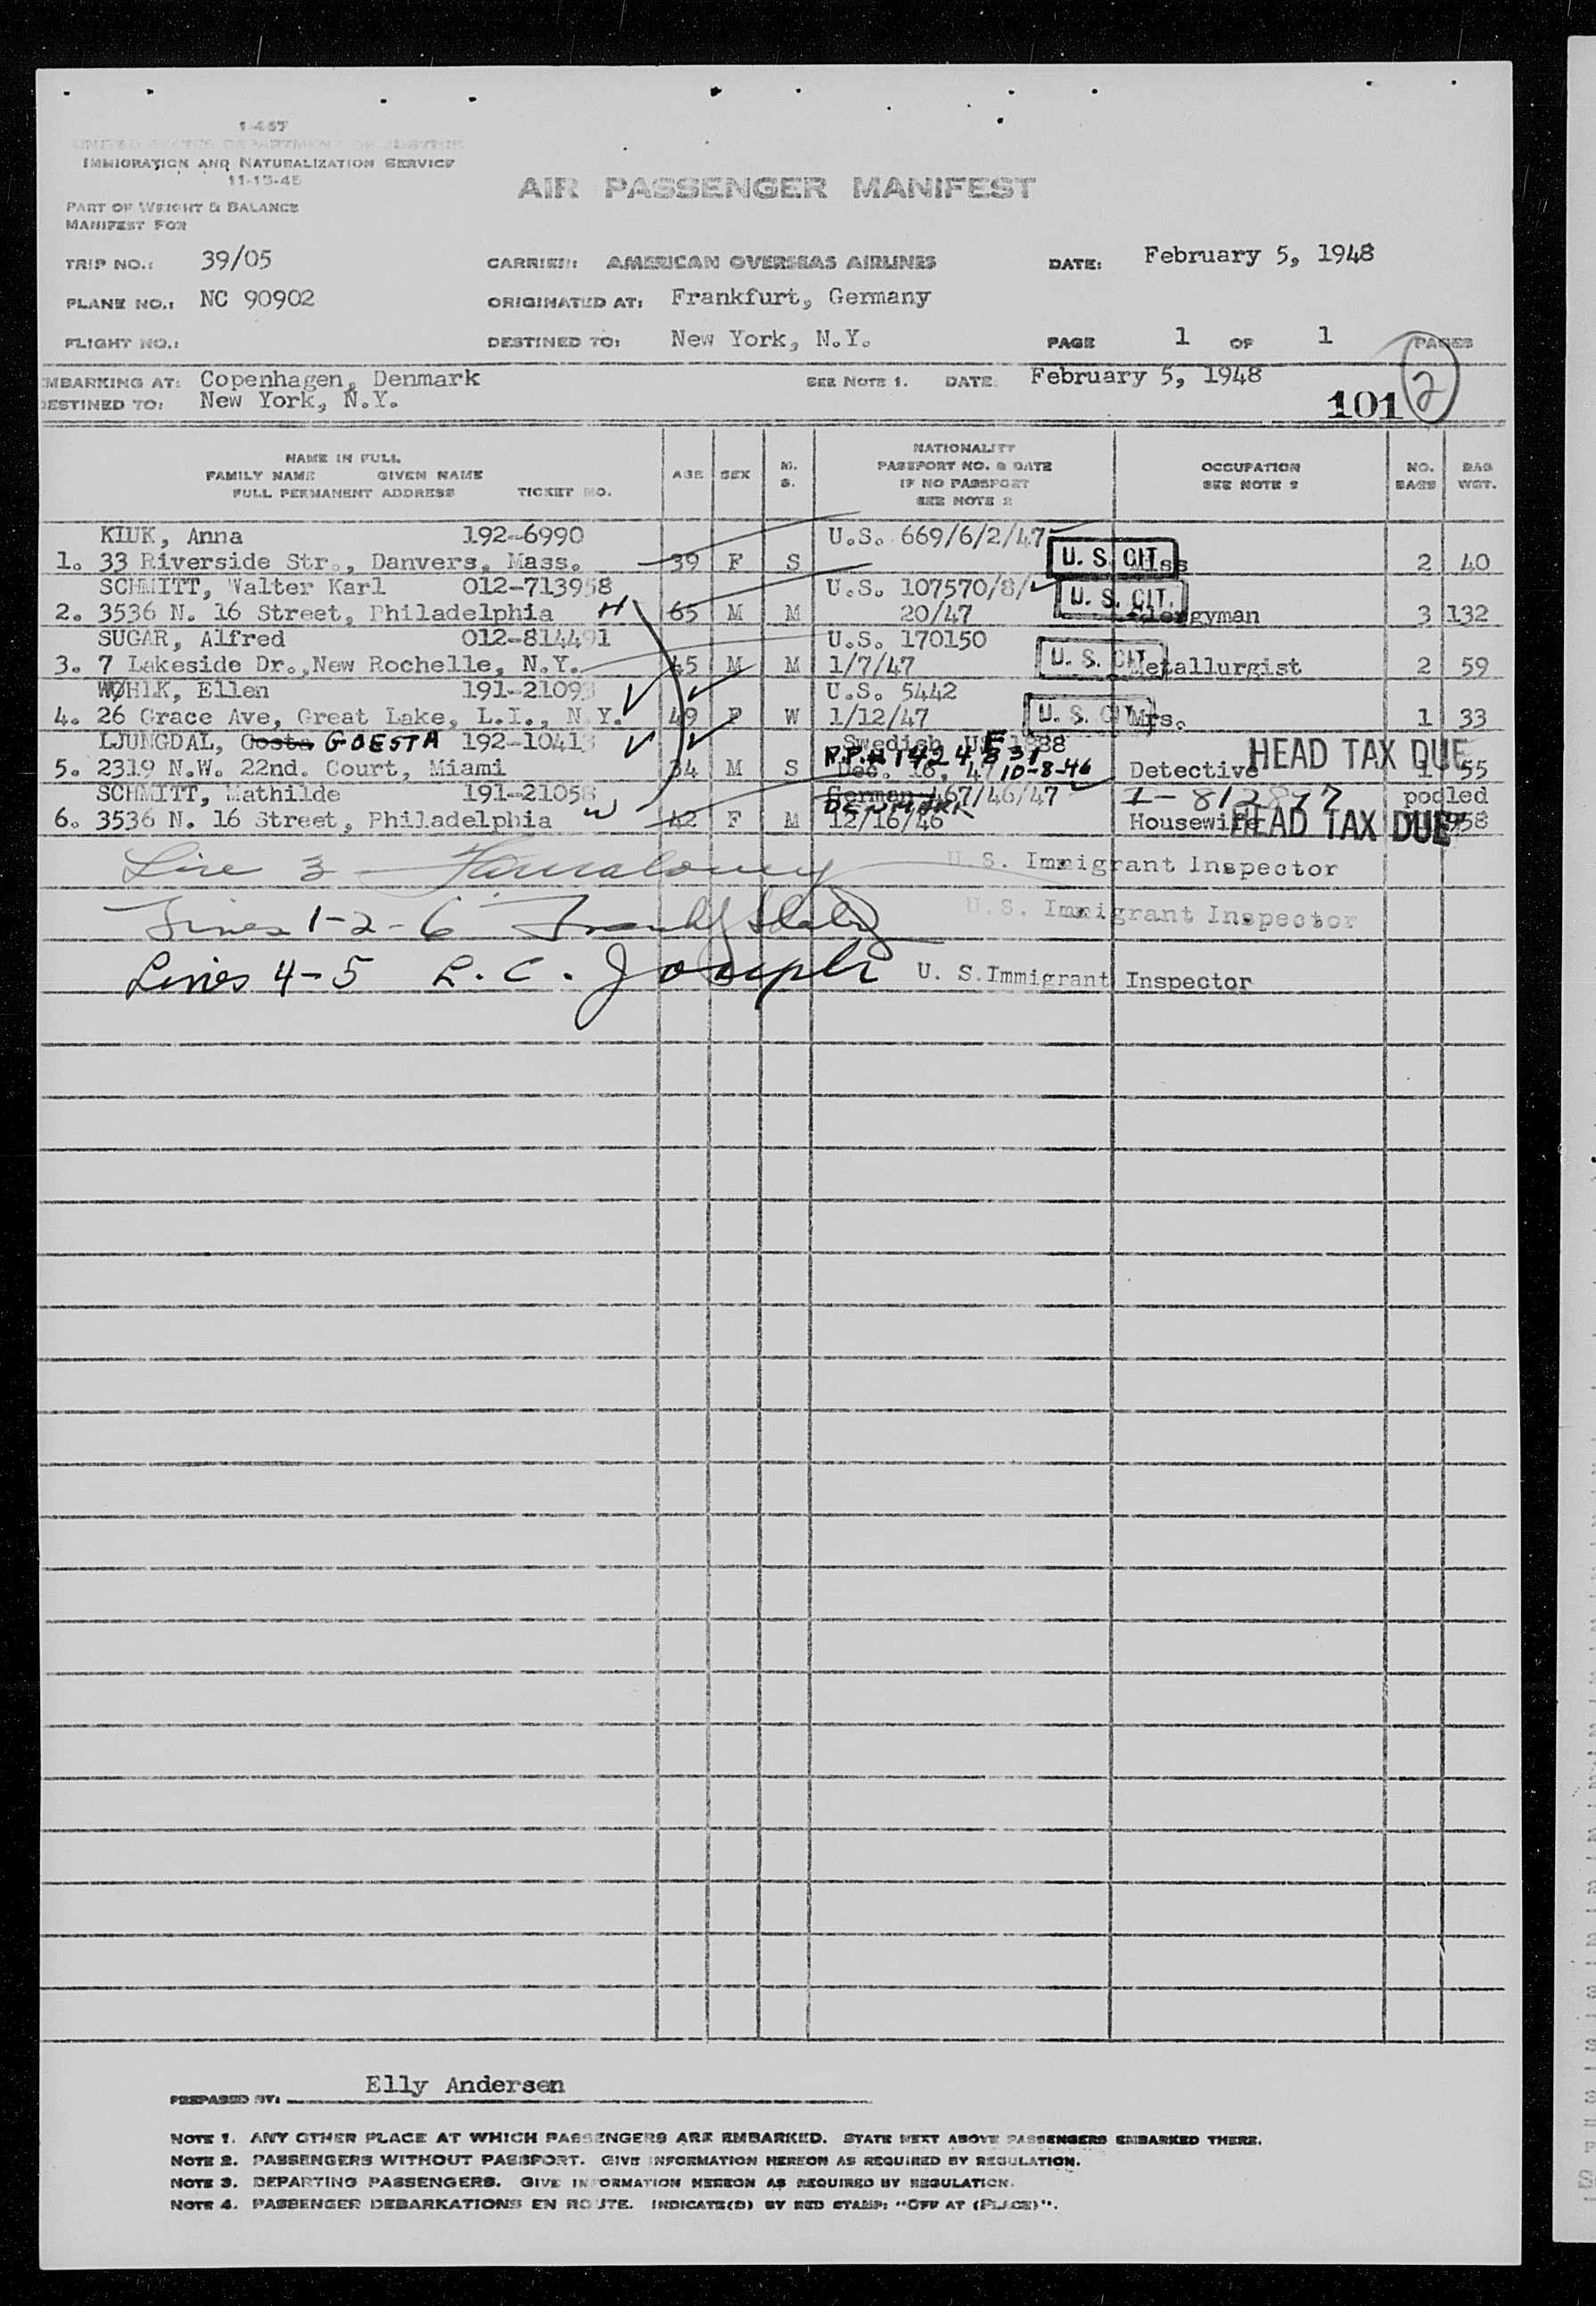 1-457
UNITED STATES DEPARTMENT OF JUSTICE
IMMIGRATION AND NATURALIZATION SERVICE
11-15-45
AIR PASSENGER MANIFEST
PART OF WEIGHT & BALANCE
MANIFEST FOR
TRIP NO.: 39/05 CARRIER: AMERICAN OVERSEAS AIRLINES DATE: February 5, 1948
PLANE NO.: NC 90902 ORIGINATED AT: Frankfurt, Germany
FLIGHT NO.: DESTINED TO: New York, N.Y. PAGE 1 OF 1 PAGES
EMBARKING AT: Copenhagen, Denmark SEE NOTE 1. DATE: February 5, 1948
DESTINED TO: New York, N.Y. 101 2
NAME IN FULL
FAMILY NAME GIVEN NAME
FULL PERMANENT ADDRESS TICKET NO.
AGE SEX M. S.
NATIONALITY
PASSPORT NO. & DATE
IF NO PASSPORT
SEE NOTE 2
OCCUPATION
SEE NOTE 2
NO. BAGS
BAG WGT.
KIUK, Anna 192-6990 U.S. 669/6/2/47
1. 33 Riverside Str., Danvers, Mass. 39 F S U.S. CIT. 2 40
SCHMITT, Walter Karl 012-713958 U.S. 107570/8/
2. 3536 N. 16 Street, Philadelphia H 65 M M 20/47 U.S. CIT. Clergyman 3 132
SUGAR, Alfred 012-814491 U.S. 170150
3. 7 Lakeside Dr., New Rochelle, N.Y. 45 M M 1/7/47 U.S. CIT. Metallurgist 2 59
WØHIK, Ellen 191-21093 U.S. 5442
4. 26 Grace Ave, Great Lake, L.I., N.Y. 49 F W 1/12/47 U.S. CIT. Mrs. 1 33
LJUNGDAL, Gosta GOESTA 192-10413 Swedish
5. 2319 N.W. 22nd. Court, Miami 34 M S Dec. 16, 47 10-8-46 Detective HEAD TAX DUE 1 55
SCHMITT, Mathilde 191-21058 German 467/46/47 pooled
6. 3536 N. 16 Street, Philadelphia W 42 F M 12/16/46 Housewife HEAD TAX DUE
Line 3 U.S. Immigrant Inspector
Lines 1-2-6 U.S. Immigrant Inspector
Lines 4-5 L.C. Joseph U. S. Immigrant Inspector
PREPARED BY: Elly Andersen
NOTE 1. ANY OTHER PLACE AT WHICH PASSENGERS ARE EMBARKED. STATE NEXT ABOVE PASSENGERS EMBARKED THERE.
NOTE 2. PASSENGERS WITHOUT PASSPORT. GIVE INFORMATION HEREON AS REQUIRED BY REGULATION.
NOTE 3. DEPARTING PASSENGERS. GIVE INFORMATION HEREON AS REQUIRED BY REGULATION.
NOTE 4. PASSENGER DEBARKATIONS EN ROUTE. INDICATE(D) BY RED STAMP: "OFF AT (PLACE)".